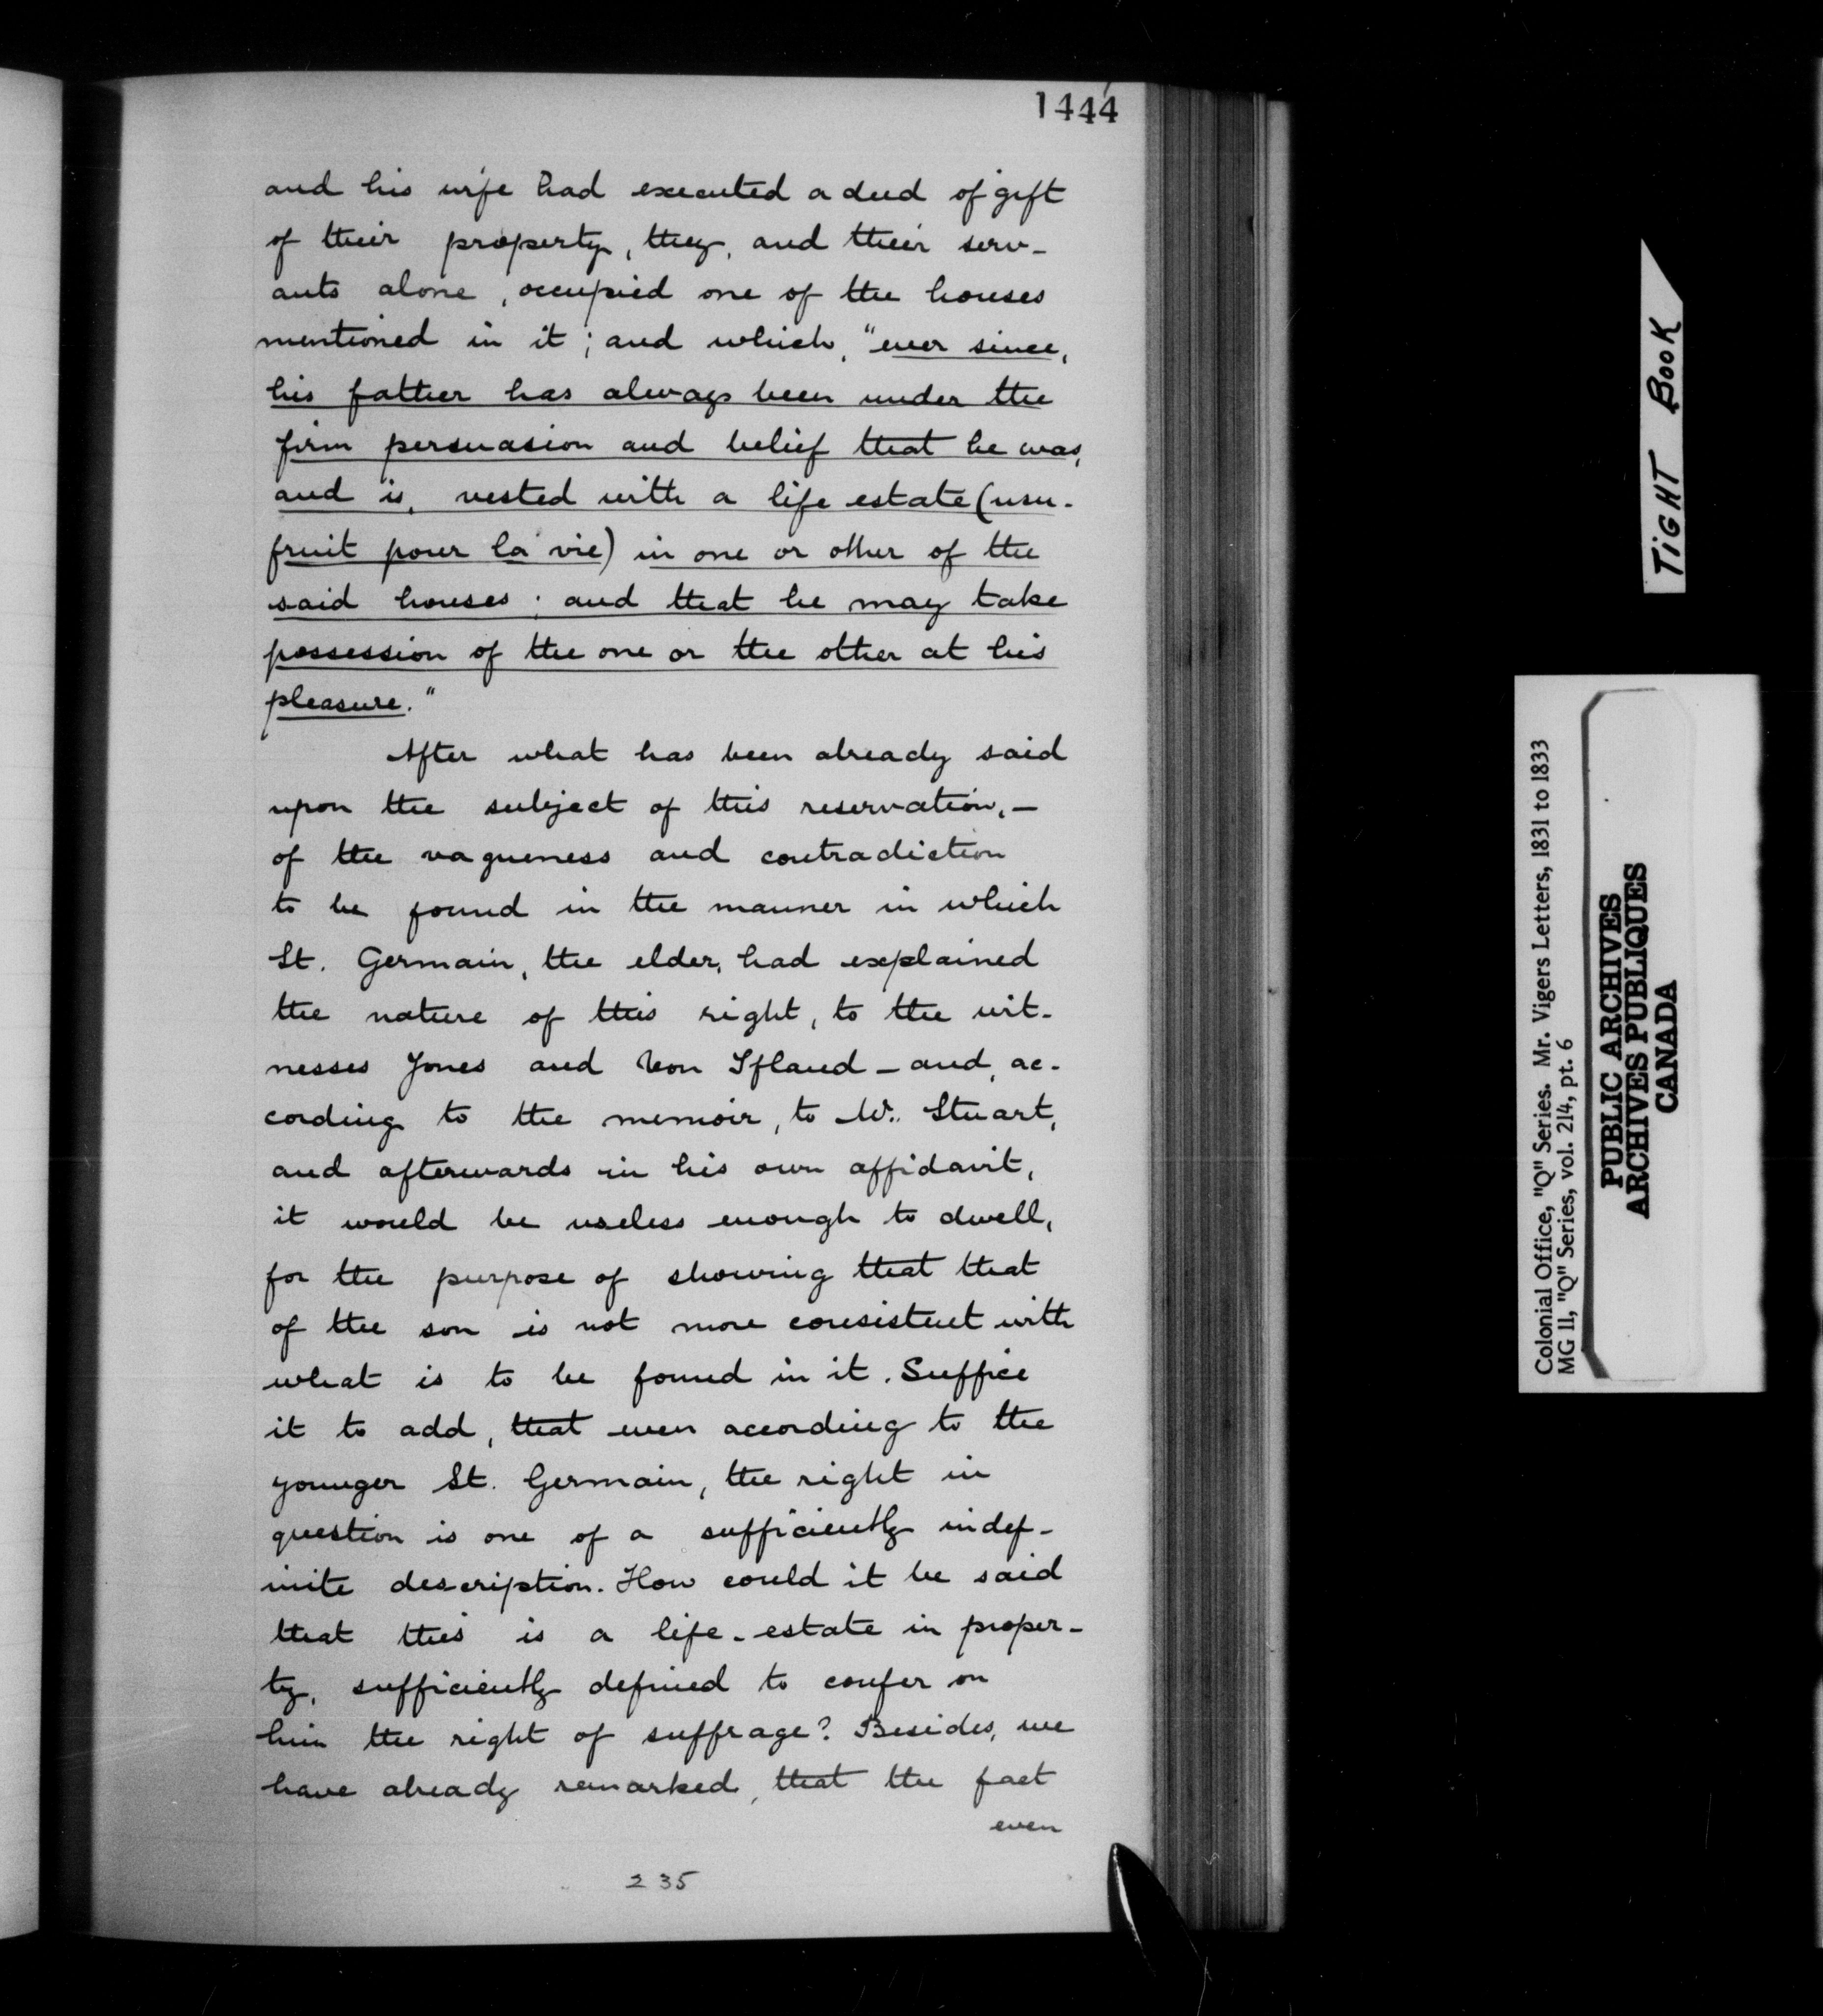 1444
and his wife had executed a deed of gift
of their property, they, and their serv-
ants alone, occupied one of the houses
mentioned in it; and which, "ever since,
his father has always been under the
firm persuasion and belief that he was,
and is, vested with a life estate (usu-
fruit pour la vie) in one or other of the
said houses; and that he may take
possession of the one or the other at his
pleasure."
After what has been already said
upon the subject of this reservation, -
of the vagueness and contradiction
to be found in the manner in which
St. Germain, the elder, had explained
the nature of this right, to the wit-
nesses Jones and Von Ifland - and, ac-
cording to the memoir, to Mr. Stuart,
and afterwards in his own affidavit,
it would be useless enough to dwell,
for the purpose of showing that that
of the son is not more consistent with
what is to be found in it. Suffice
it to add, that even according to the
younger St. Germain, the right in
question is one of a sufficiently indef-
inite description. How could it be said
that this is a life-estate in proper-
ty, sufficiently defined to confer on
him the right of suffrage? Besides, we
have already remarked, that the fact
even
235
TIGHT BOOK
Colonial Office, "Q" Series. Mr. Vigers Letters, 1831 to 1833
MG 11, "Q" Series, vol. 214, pt. 6
PUBLIC ARCHIVES
ARCHIVES PUBLIQUES
CANADA